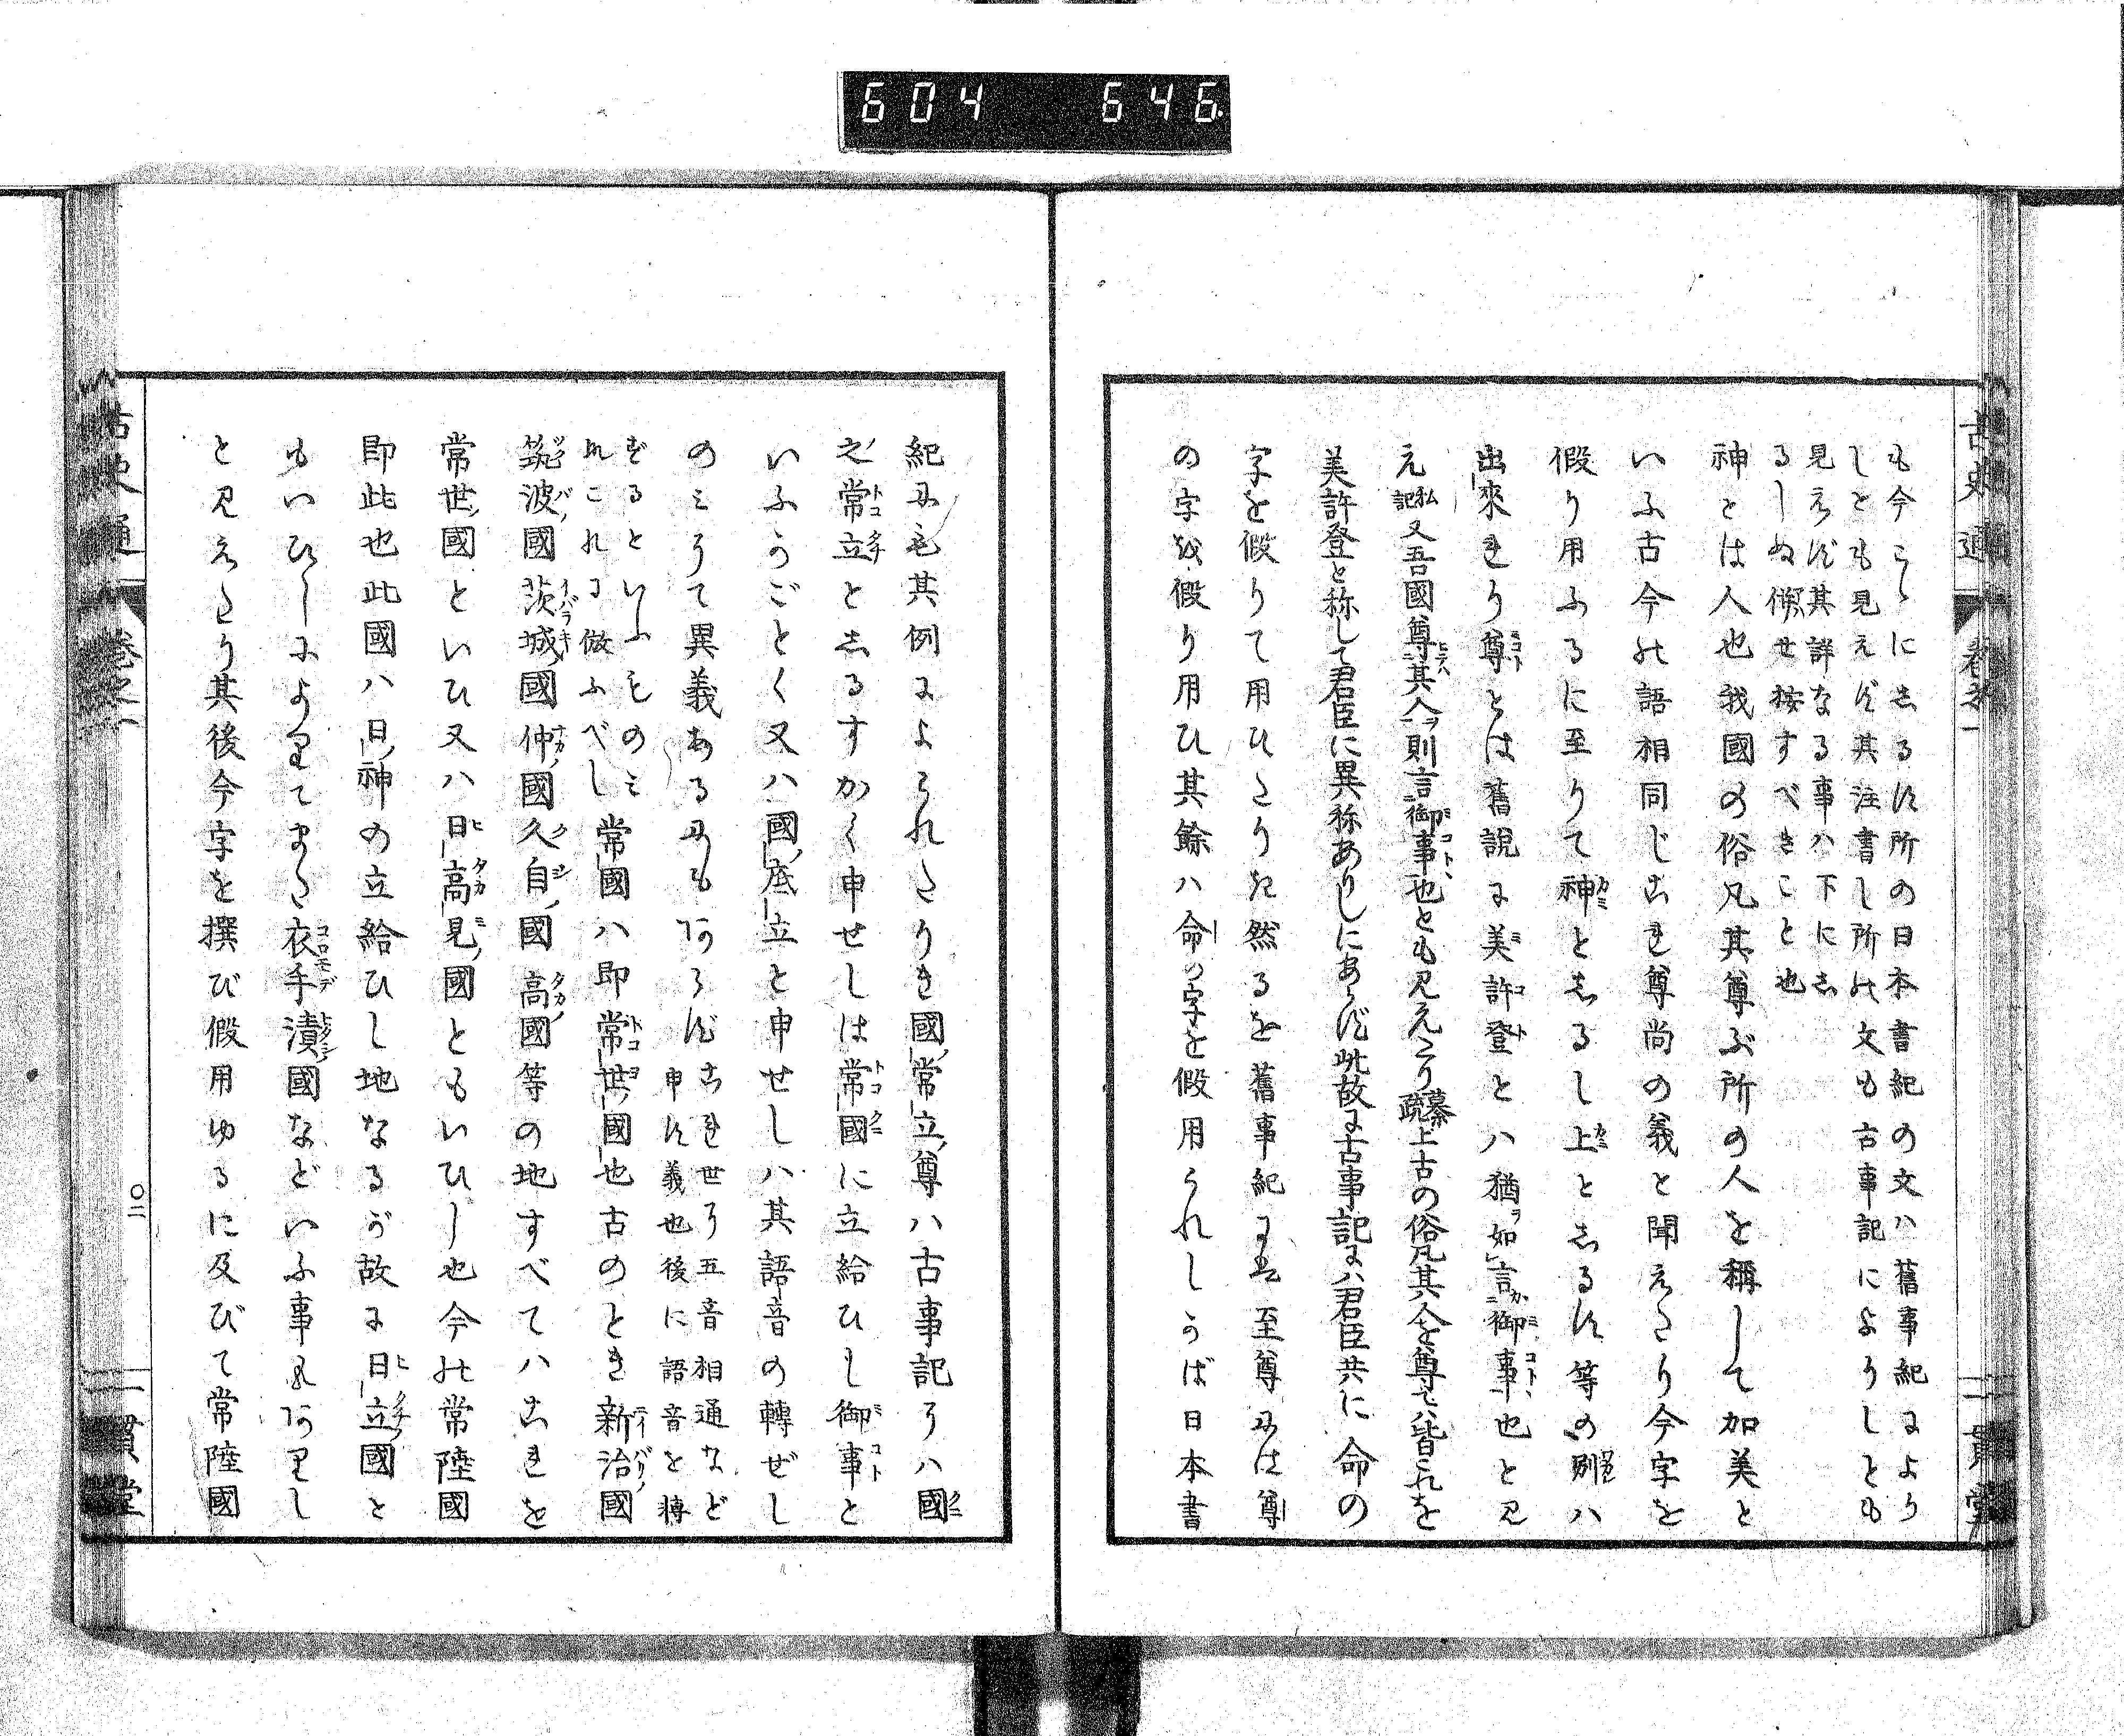 604 646
古史通
卷之一
一貫堂
も今こゝにしるす所の日本書紀の文ハ舊事紀により
しとも見えず其注書し所の文も古事記によりしとも
見えず其詳なる事ハ下にし
るしぬ併せ按すべきこと也
神とは人也我國の俗凡其尊ぶ所の人を稱して加美と
いふ古今の語相同じこれ尊尚の義と聞えたり今字を
假り用ふるに至りて神としるし上としるす等の別ハ
出來れり尊とは舊説に美許登とハ猶如言御事也と見
え私記又吾國尊其人則言御事也とも見えたり纂疏上古の俗凡其人を尊でハ皆これを
美許登と称して君臣に異称ありしにあらず此故に古事記にハ君臣共に命の
字を假りて用ひたりき然るを舊事紀には至尊には尊
の字を假り用ひ其餘ハ命の字を假用られしかば日本書
紀にも其例によられたりき國常立尊ハ古事記にハ國
之常立としるすかく申せしは常國に立給ひし御事と
いふがごとく又ハ國底立と申せしハ其語音の轉ぜし
のみにて異義あるにもあらず これ世に五音相通など申す義也後に語音を轉
ずるといふものみ
なこれに倣ふべし 常國ハ即常世國也古のとき新治國
筑波國茨城國仲國久自國高國等の地すべてハこれを
常世國といひ又ハ日高見國ともいひし也今の常陸國
即此也此國ハ日神の立給ひし地なるが故に日立國と
もいひしによりてまた衣手漬國などいふ事もありし
と見えたり其後今字を撰び假用ゆるに及びて常陸國
古史通
卷之一
〇二
一貫堂